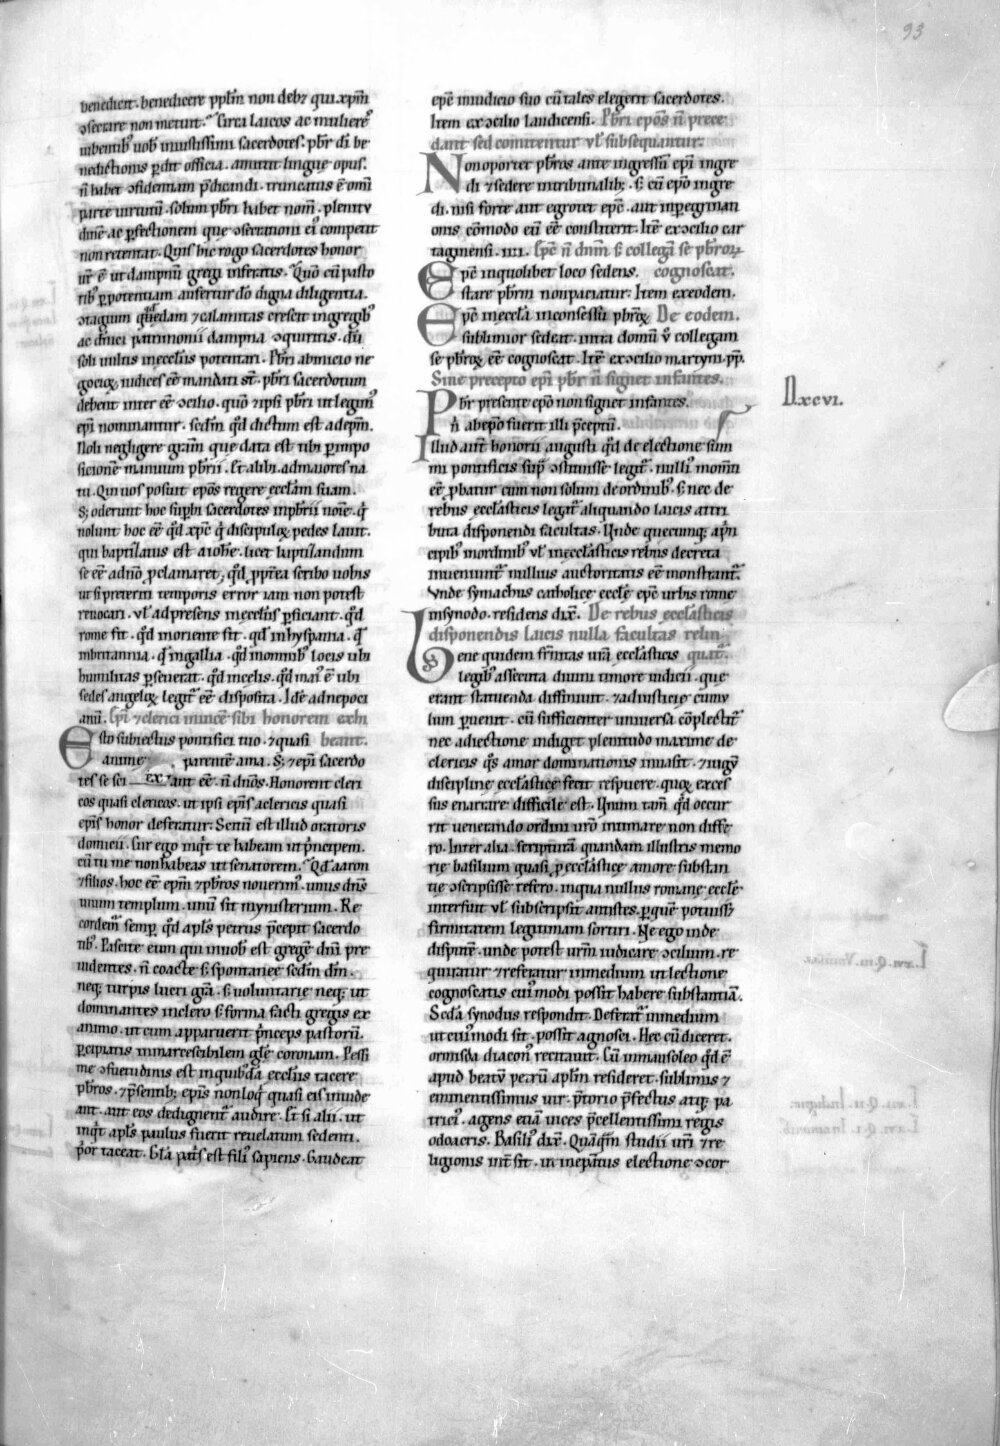 93
benedicit. benedicere ppłm non debꝫ qui. xpm̄
ↄsecrare non metuit. Circa laicos ac muliereˢ
iubentibꝰ uob̄ iniustissimi sacerdotes. pb̄r di be
nedictionis ꝑdit officia. amittit lingue opus.
si habet ↄfidentiam p̄dicandi. truncatus ē om̄i
parte uirtutū. solum pb̄ri habet nom̄. plenitu
dinē ac ꝑfectionem que ↄsecrationi eiꝰ competit
non retentat. Quis hic rogo sacerdotes honor
ur̄ ē ut dampnū gregi inferatis. Quō cū pasto
ribꝰ ꝑ potentiam aufertur dō digna diligentia.
ↄtagium quēdam ⁊ calamitas crescit in gregibꝰ
ac dn̄ici patrimonii dampna ↄquiritis. dū
soli uultis in eccl̄iis potentari. Pb̄ri ab inicio ne
gocioꝝ iudices eē mandati st̄. pb̄ri sacerdotum
debent inter eē ↄcilio. quō ⁊ ipsi pb̄ri ut legimꝰ
epi nominantur. sedm̄ qd̄ dictum est ad epm̄.
Noli negligere gr̄am que data est tibi ꝑ impo
sicionē manuum pb̄rii. Et alibi. ad maiores na
tu. Qui uos posuit epōs regere eccl̄am suam.
Sꝫ oderunt hoc supbi sacerdotes in pb̄rii noīe. q̄
nolunt hoc eē qd̄ xpc̄ q̄ discipuloꝝ pedes lauit.
qui baptizatus est a ioh̄e. licet baptizandum
se eē ad no proclamaret; qd̄ ꝓpt̄ea scribo uobis
ut si preterm temporis error iam non potest
reuocari. vł ad presens in eccl̄iis ꝑficiant. qd̄
rome fit. qd̄ in oriente fit. qd̄ in hyspania. qd̄
in britannia. qd̄ in gallia. qd̄ in omnibꝰ locis ubi
humilitas ꝑseuerat. qd̄ in celis. qd̄ maiꝰ ē ubi
sedes angeloꝝ legitꝰ eē disposita. Idē ad nepoci
anū. Epi ⁊ clerici inuicē sibi honorem exhi
Esto subiectus pontifici tuo. ⁊ quasi beant.
anime parentē ama. Sꝫ ⁊ epi sacerdo
tes se sci ex ant eē. n̄ dn̄os. Honorent cleri
cos quasi clericos. ut ipsi epīs a clericis quasi
epīs honor deferatur. Scitū est illud oratoris
domicii. Cur ego inq̄t te habeam ut p̄ncipem.
cū tu me non habeas ut senatorem. Qd̄ aaron
⁊ filios. hoc eē epm̄ ⁊ pb̄ros nouerimꝰ. unus dn̄s
unum templum. unū sit mynisterium. Re
cordemꝰ semꝑ qd̄ apl̄s petrus p̄cepit sacerdo
tibꝰ. Pascite eum qui in uob̄ est gregē dn̄i pro
uidentes. n̄ coacte sꝫ spontanee sedm̄ dm̄.
neqꝫ turpis lucri gr̄a. sꝫ voluntarie neqꝫ ut
dominantes in clero sꝫ forma facti gregis ex
animo. ut cum apparuerit p̄nceps pastorū.
ꝑcipiatis inmarcescibilem gl̄e coronam. Pessi
me ↄsuetudinis est in quibd̄a eccl̄iis tacere
pb̄ros. ⁊ p̄sentibꝫ epīs non loq̄ quasi eis inuide
ant. aut eos dedignentꝰ audire. Et si alii. ut
inq̄t apl̄s paulus fuerit reuelatum sedenti.
p̄or taceat. Gl̄a pat̄s est filiꝰ sapiens. Gaudeat
epc̄ in iudicio suo cū tales elegerit sacerdotes.
Item ex ↄcilio laudicensi. Pb̄ri epōs n̄ prece
dant sed comitentur vł subsequantur.
Non oportet pb̄ros ante ingressū epi ingre
di ⁊ sedere in tribunalibꝫ. sꝫ cū epo ingre
di. nisi forte aut egrotet epc̄. aut in peregrinati
onis cōmodo eū eē constiterit. Itē ex ↄcilio car
taginensi. iiii. Epc̄ n̄ dnm̄ sꝫ collegā se pb̄roꝝ
Epc̄ in quolibet loco sedens. cognoscat.
stare pb̄rm non paciatur. Item ex eodem.
Epc̄ in eccl̄a in consessū pb̄roꝝ De eodem.
sublimior sedeat. intra domū v̄ collegam
se pb̄roꝝ eē cognoscat. Itē ex ↄcilio martyni pp̄.
Sine precepto epi pb̄r n̄ signet infantes.
Pb̄r presente epo non signet infantes.
n̄ ab epo fuerit illi p̄ceptū.
D. xcvi.
Illud aut̄ honorii augusti qd̄ de electione sum
mi pontificis sup̄ ↄstituisse legitꝰ. nulliꝰ momti
eē ꝓbatur cum non solum de ordinibꝰ. sꝫ nec de
rebus eccl̄asticis legatꝰ aliquando laicis attri
buta disponendi facultas. Unde quecunqꝫ a p̄n
cipibꝰ in ordinibꝰ vł in eccl̄asticis rebus decreta
inueniuntꝰ nullius auctoritatis eē monstrantꝰ.
Vnde symachus catholice eccl̄e epc̄ urbis rome
in synodo. residens dix̄. De rebus eccl̄asticis
disponendis laicis nulla facultas relin
Bene quidem fr̄nitas ur̄a eccl̄asticis quitꝰ.
legibꝰ assecuta diuini timore iudicii. que
erant statuenda diffiniuit. ⁊ ad iusticie cumu
lum ꝑuenit. cū sufficienter uniuersa cōplectitꝰ
nec adiectione indiget plenitudo maxime de
clericis q̄s amor dominationis inuasit. ⁊ iugū
discipline eccl̄astice fecit respuere. quoꝝ exces
sus enarrare difficile est. Unum tam̄ qd̄ occur
rit uenerando ordini uro intimare non diffe
ro. Inter alia. scripturā quandam illustris memo
rie basilium quasi ꝓ eccl̄astice amore substan
tie ↄscripsisse refero. in qua nullus romane eccl̄e
interfuit vł subscripsit antistes. ꝑ quē potuissꝫ
firmitatem legitimam sortiri. Ne ego inde
disputē. unde potest urm̄ iudicare ↄcilium. re
quiratur ⁊ referatur in medium ut lectione
cognoscatis cuiꝰmodi possit habere substantiā.
Scda synodus respondit. Deferatꝰ in medium
ut cuiꝰmodi sit. possit agnosci. Hec cū diceret.
ormisda diaconꝰ recitauit. Cū in mausoleo qd̄ ē
apud beatū petrū aplm̄ resideret. sublimis ⁊
eminentissimus uir. p̄torio p̄fectus atqꝫ pa
triciꝰ. agens etiā uices p̄cellentissimi regis
odoacris. Basiliꝰ dix̄. Quāq̄m studii uri ⁊ re
ligionis int̄sit. ut in epatus electione ↄcor